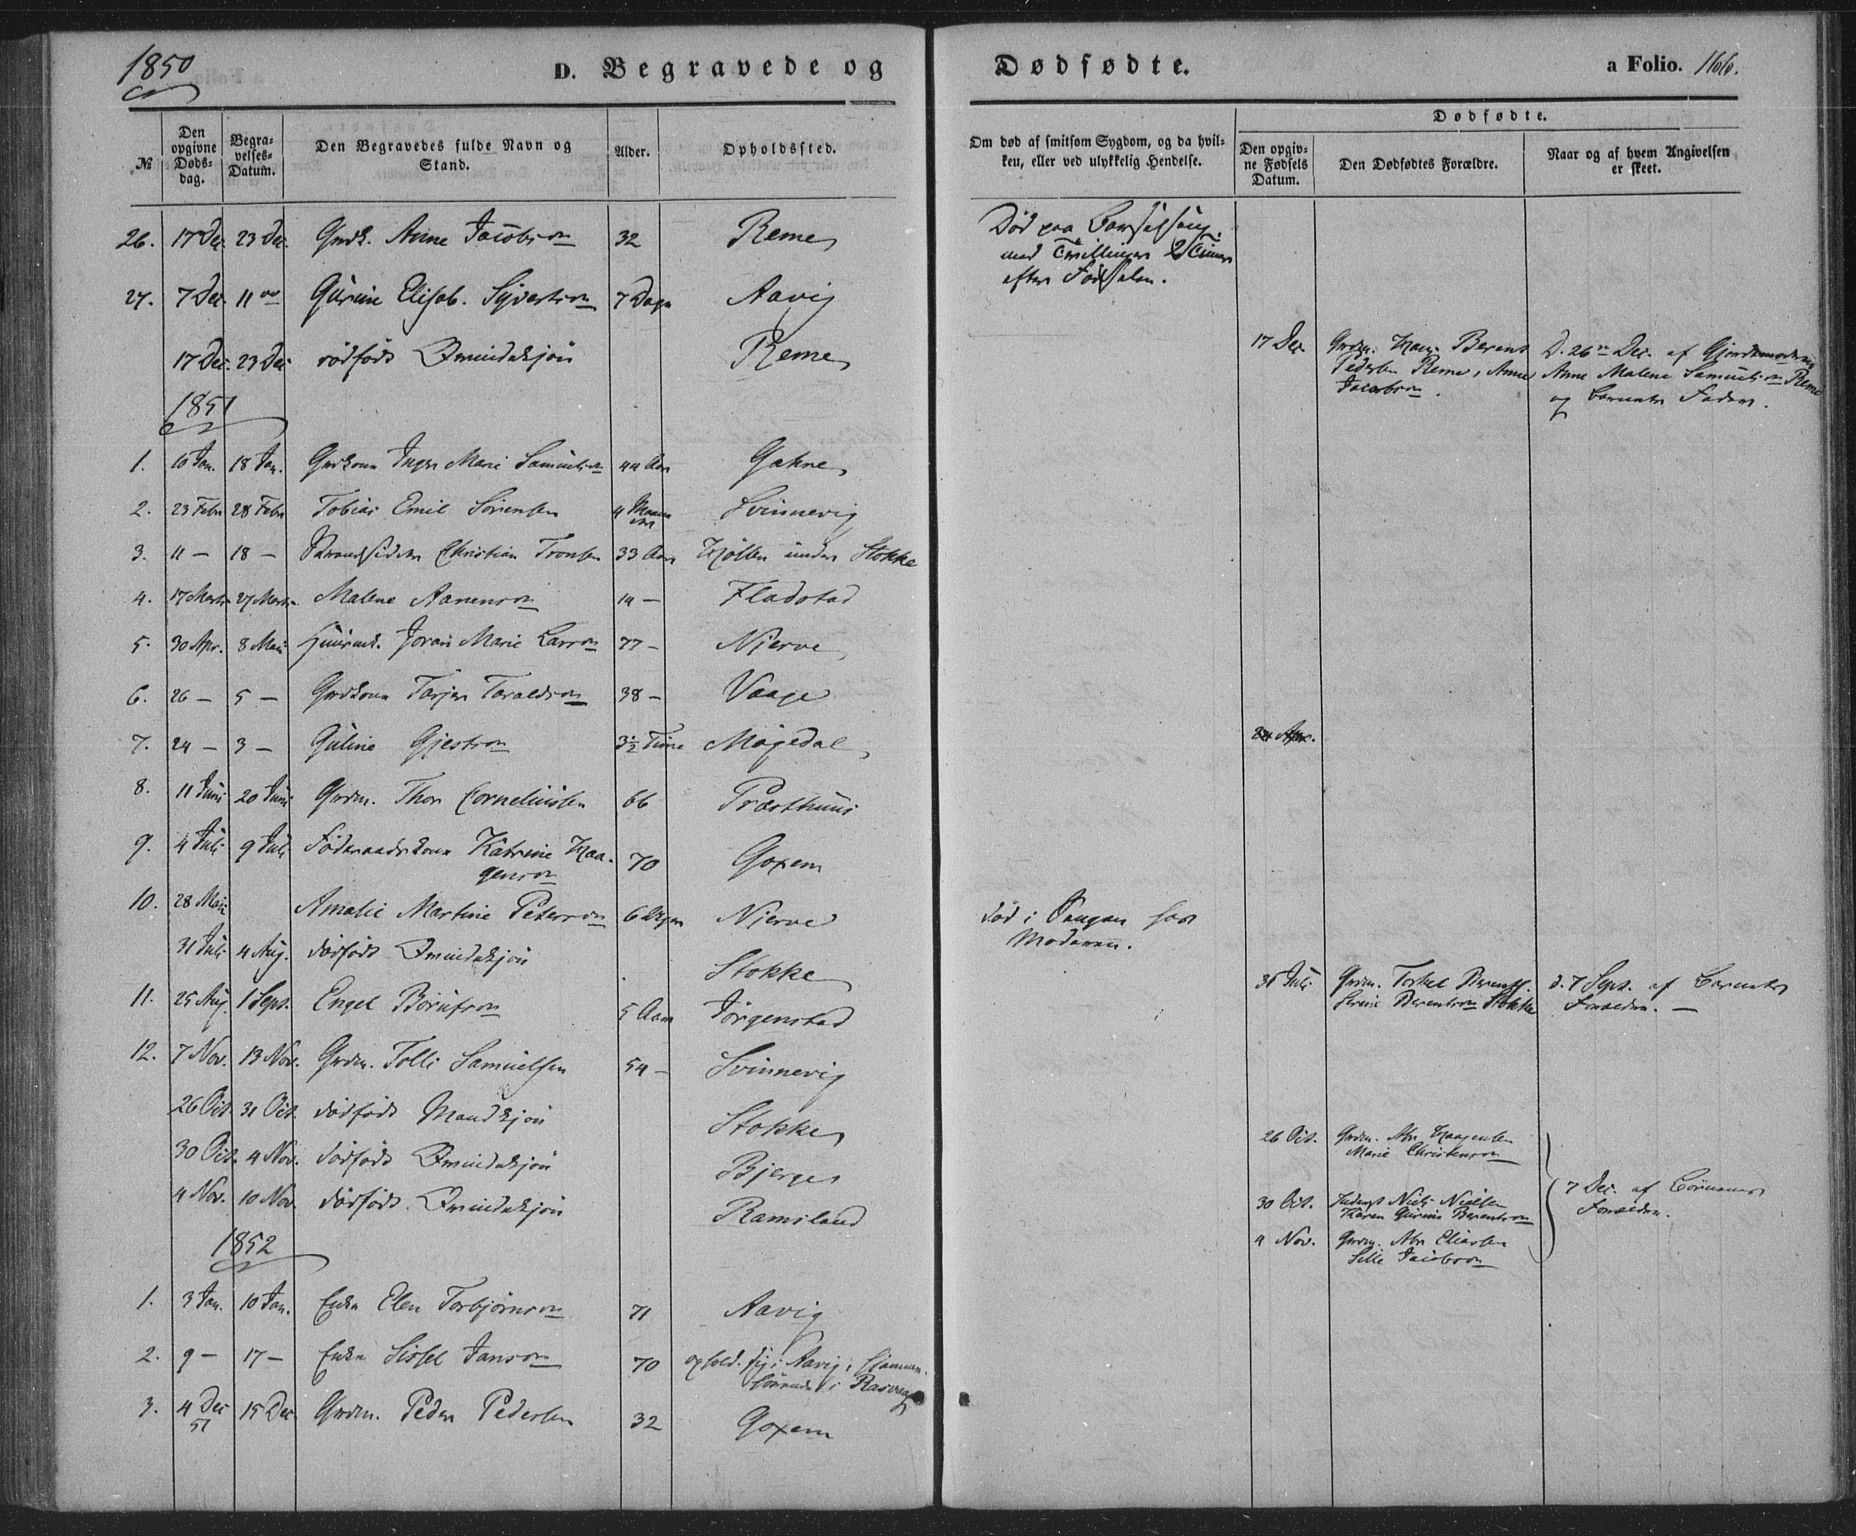 1850
D. Begravede og Dødfødte. a Folio. 166.
№
Den opgivne Døds-dag.
Begra-velses-Datum.
Den Begravedes fulde Navn og Stand.
Alder.
Opholdssted.
Om død af smitsom Sygdom, og da hvil-ken, eller ved ulykkelig Hendelse.
Dødfødte.
Den opgiv-ne Fødsels Datum.
Den Dødfødtes Forældre.
Naar og af hvem Angivelsen er skeet.
26. 17 Dec. 23 Dec. Grdk. Anne Jacobsen 32 Reme Død paa Barselseng
med Trillinger 2 Timer
efter Fødselen.
27. 7 Dec. 11 Gurine Elisab. Syvertsen 7 Dage Aavig
17 Dec. 23 Dec dødfødt Qvindekjøn Reme 17 Dec. Grdm. Berent
Pedersen Reme, Anne
Jacobsen.
D. 26 Dec. af Gjordemoderen
Anne Malene Samuelsen Reme
og Barnets Fader.
1851
1. 10 Jan. 18 Jan. Grdkone Inger Marie Samuelsen 44 Aar Gahre
2. 23 Febr 28 Febr Tobias Emil Sørensen 4 Maaneder Svinnevig
3. 11 — 18 — Strandsidder Christian Tronsen 33 Aar under Stokke
4. 17 Marts 27 Marts Malene Aanensen 14 — Fladstad
5. 30 Apr. 8 Mai Joran Marie Larsen 77 — Njerve
6. 26 — 5 — Grdkone Tarjer Taraldsen 38 — Vaage
7. 24 — 3 — Guline Gjestsen 3½ Time Møgedal 24 Apr.
8. 11 Juni 20 Juni Grdm. Thor Corneliussen 66 Præsthuus
9. 4 Juli 9 Juli Føderaadskone Katrine Haa-
gensen 70 Goxem
10. 28 Mai Amalie Martine Petersen 6 Uger Njerve Død i Sengen hos
Moderen.
31 Juli 4 Aug. dødfødt Qvindekjøn Stokke 31 Juli Grdm. Torkel Berents.
Serine Berentsen Stokke
d. 7 Sept. af Barnets
Forældre. —
11. 25 Aug. 1 Sept. Engel Børufsen 5 Aar Jørgenstad
12. 7 Nov. 13 Nov. Grdm. Tolli Samuelsen 54 — Svinnevig
26 Oct. 31 Oct. dødfødt Mandkjøn Stokke 26 Oct. Grdm. Abr Haagensen
Marie Christensen
30 Oct. 4 Nov. dødfødt Qvindekjøn Bjerge 30 Oct. Niels Nielsen
Karen Gurine Berentsen
7 Dec. af Børnenes
Forældre.
4 Nov. 10 Nov. dødfødt Qvindekjøn Ramsland 4 Nov. Grdm. Abr Eliassen
Sille Jacobsen
1852
1. 3 Jan. 10 Jan. Enke Elen Torbjørnsen 71 Aavig
2. 9 — 17 — Enke Sissel Jansen 70 ophold. sig i Aavig,
i Rasvaag
3. 4 Dec
51 15 Dec Grdm. Peder Pedersen 32 Goxem